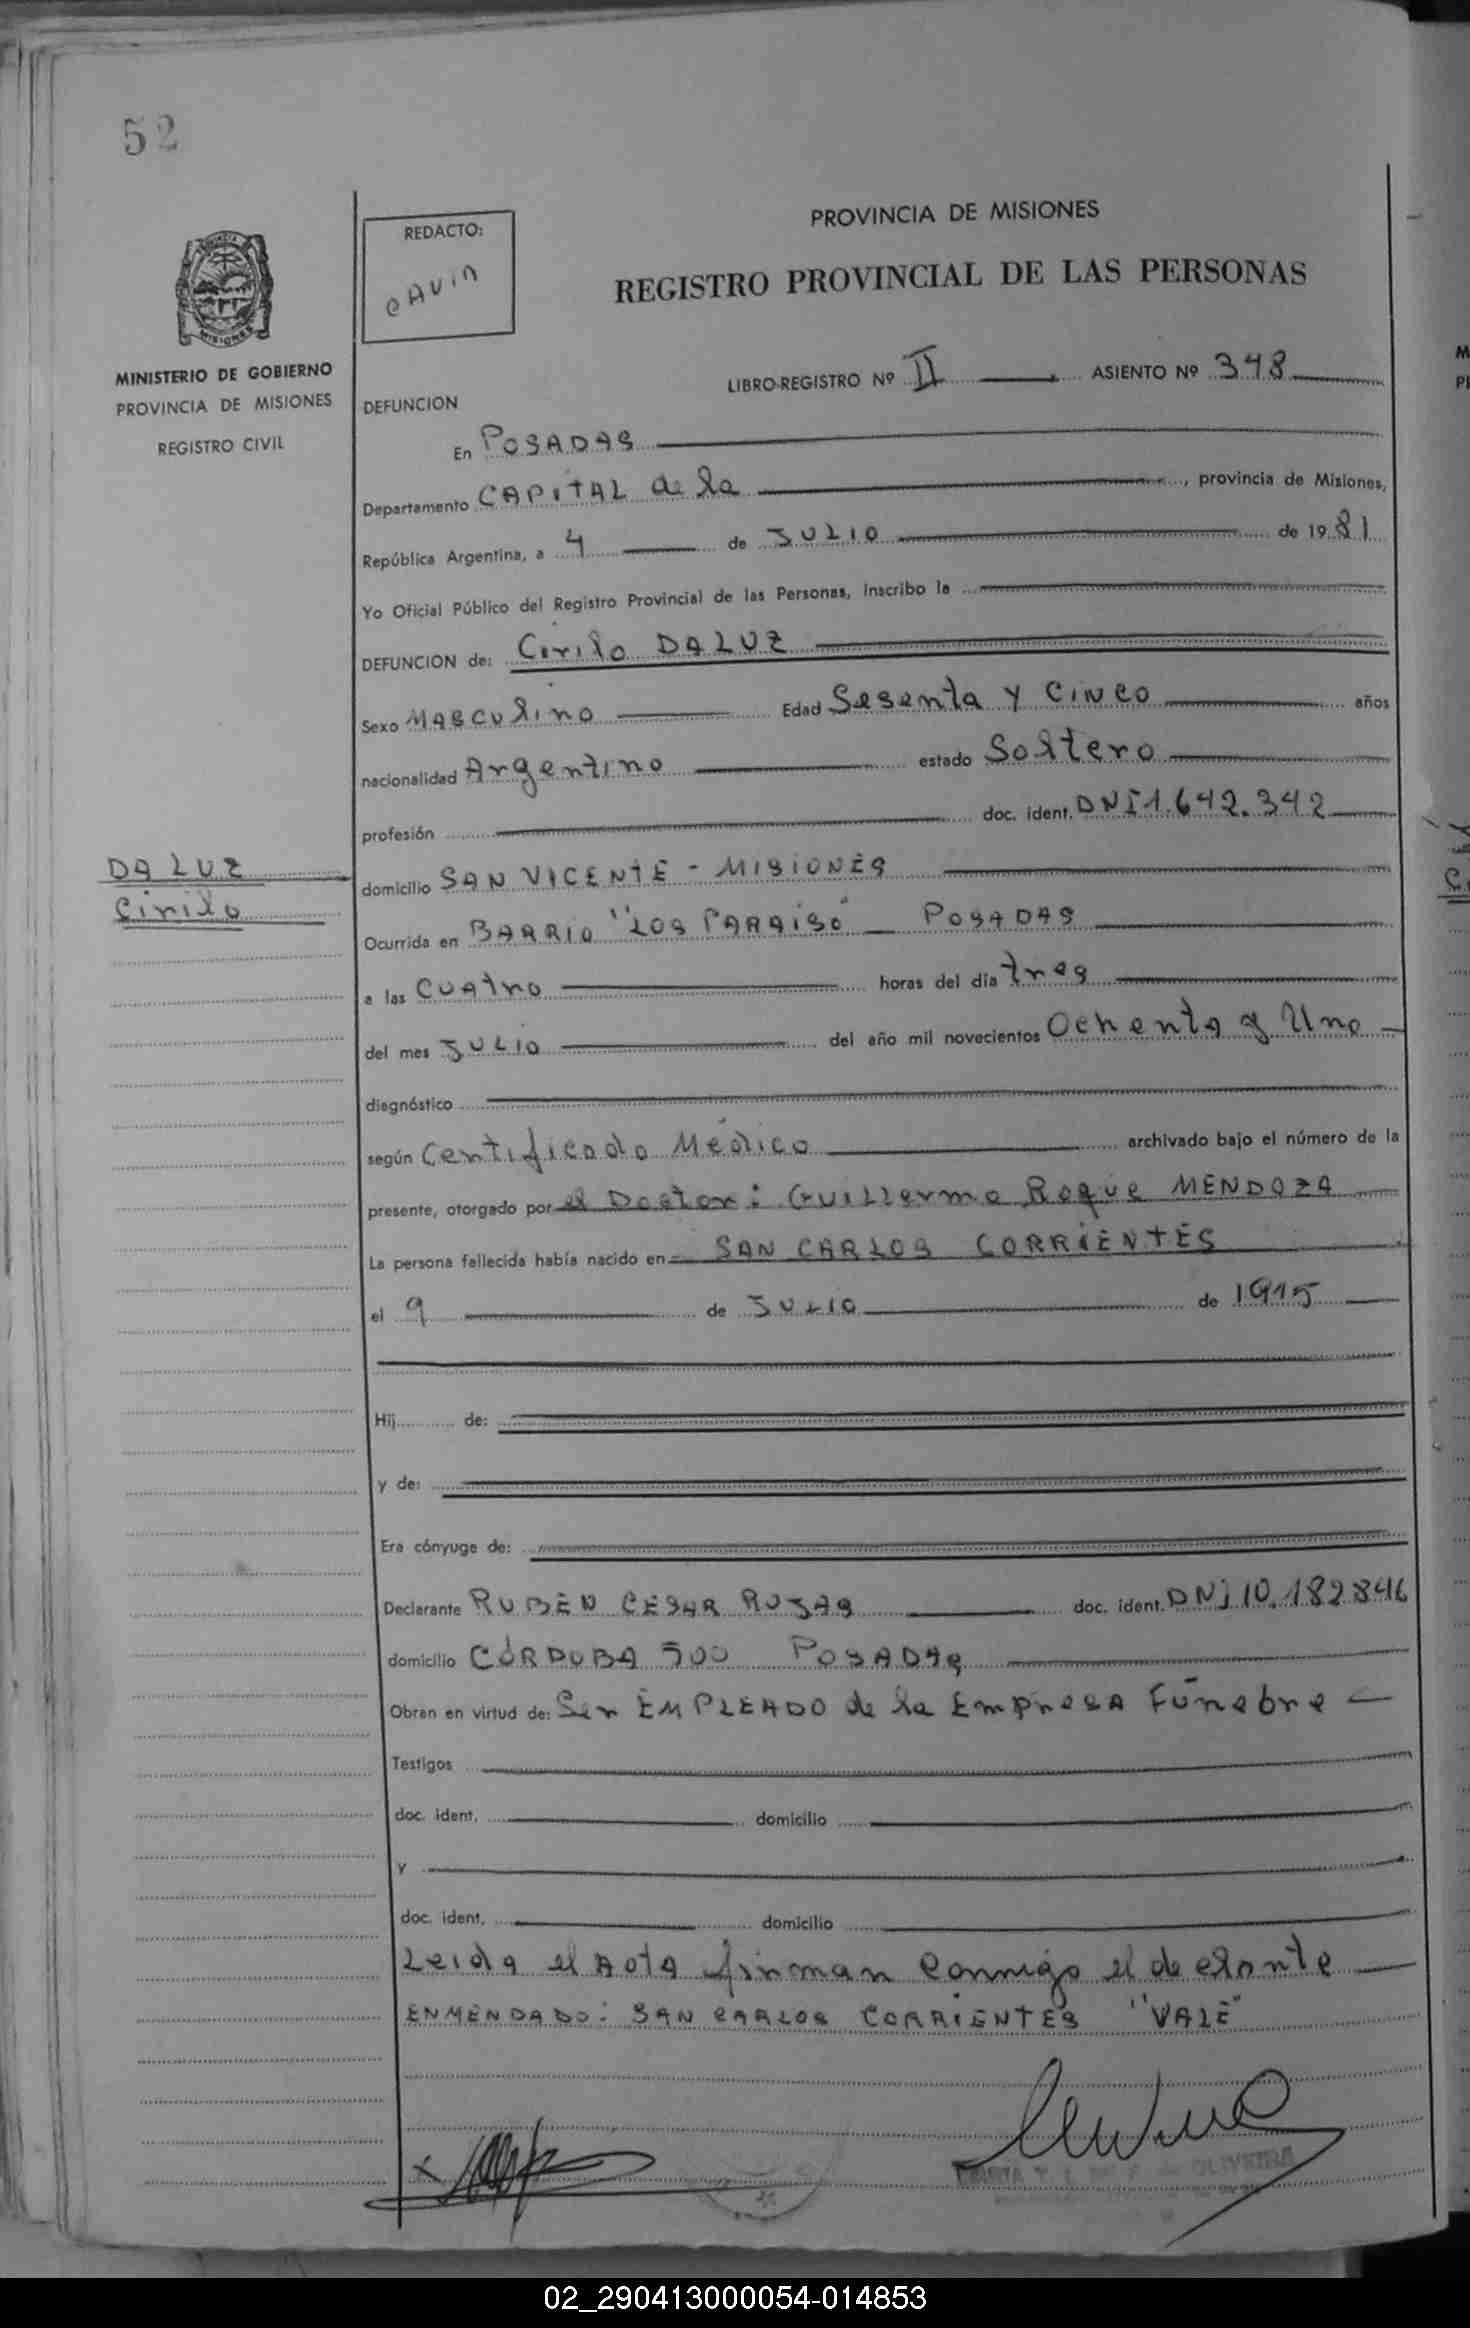 52
PROVINCIA DE MISIONES
REDACTO:
CAVIA
REGISTRO PROVINCIAL DE LAS PERSONAS
MISIONES
MINISTERIO DE GOBIERNO
PROVINCIA DE MISIONES
REGISTRO CIVIL
LIBRO-REGISTRO Nº II ASIENTO Nº 348
DEFUNCION
En POSADAS
Departamento CAPITAL de la , provincia de Misiones,
República Argentina, a 4 de JULIO de 1981
Yo Oficial Público del Registro Provincial de las Personas, inscribo la
DEFUNCION de: Cirilo DALUZ
Sexo MASCULINO Edad Sesenta y CINCO años
nacionalidad Argentino estado Soltero
profesión doc. ident. DNI 1.642.342
DALUZ
Cirilo
domicilio SAN VICENTE - MISIONES
Ocurrida en BARRIO "LOS PARAISO" - POSADAS
a las CUATRO horas del día tres
del mes JULIO del año mil novecientos Ochenta y Uno
diagnóstico
según Certificado Médico archivado bajo el número de la
presente, otorgado por el Doctor: Guillermo Roque MENDOZA
La persona fallecida había nacido en SAN CARLOS CORRIENTES
el 9 de JULIO de 1915
Hij de:
y de:
Era cónyuge de:
Declarante RUBEN CESAR ROJAS doc. ident. DNI 10.182.846
domicilio CÓRDOBA 500 POSADAS
Obran en virtud de: Ser EMPLEADO de la Empresa Fúnebre
Testigos
doc. ident. domicilio
y
doc. ident. domicilio
Leida el Acta firman conmigo el declante
ENMENDADO: SAN CARLOS CORRIENTES "VALE"
OLIVEIRA
02_290413000054-014853